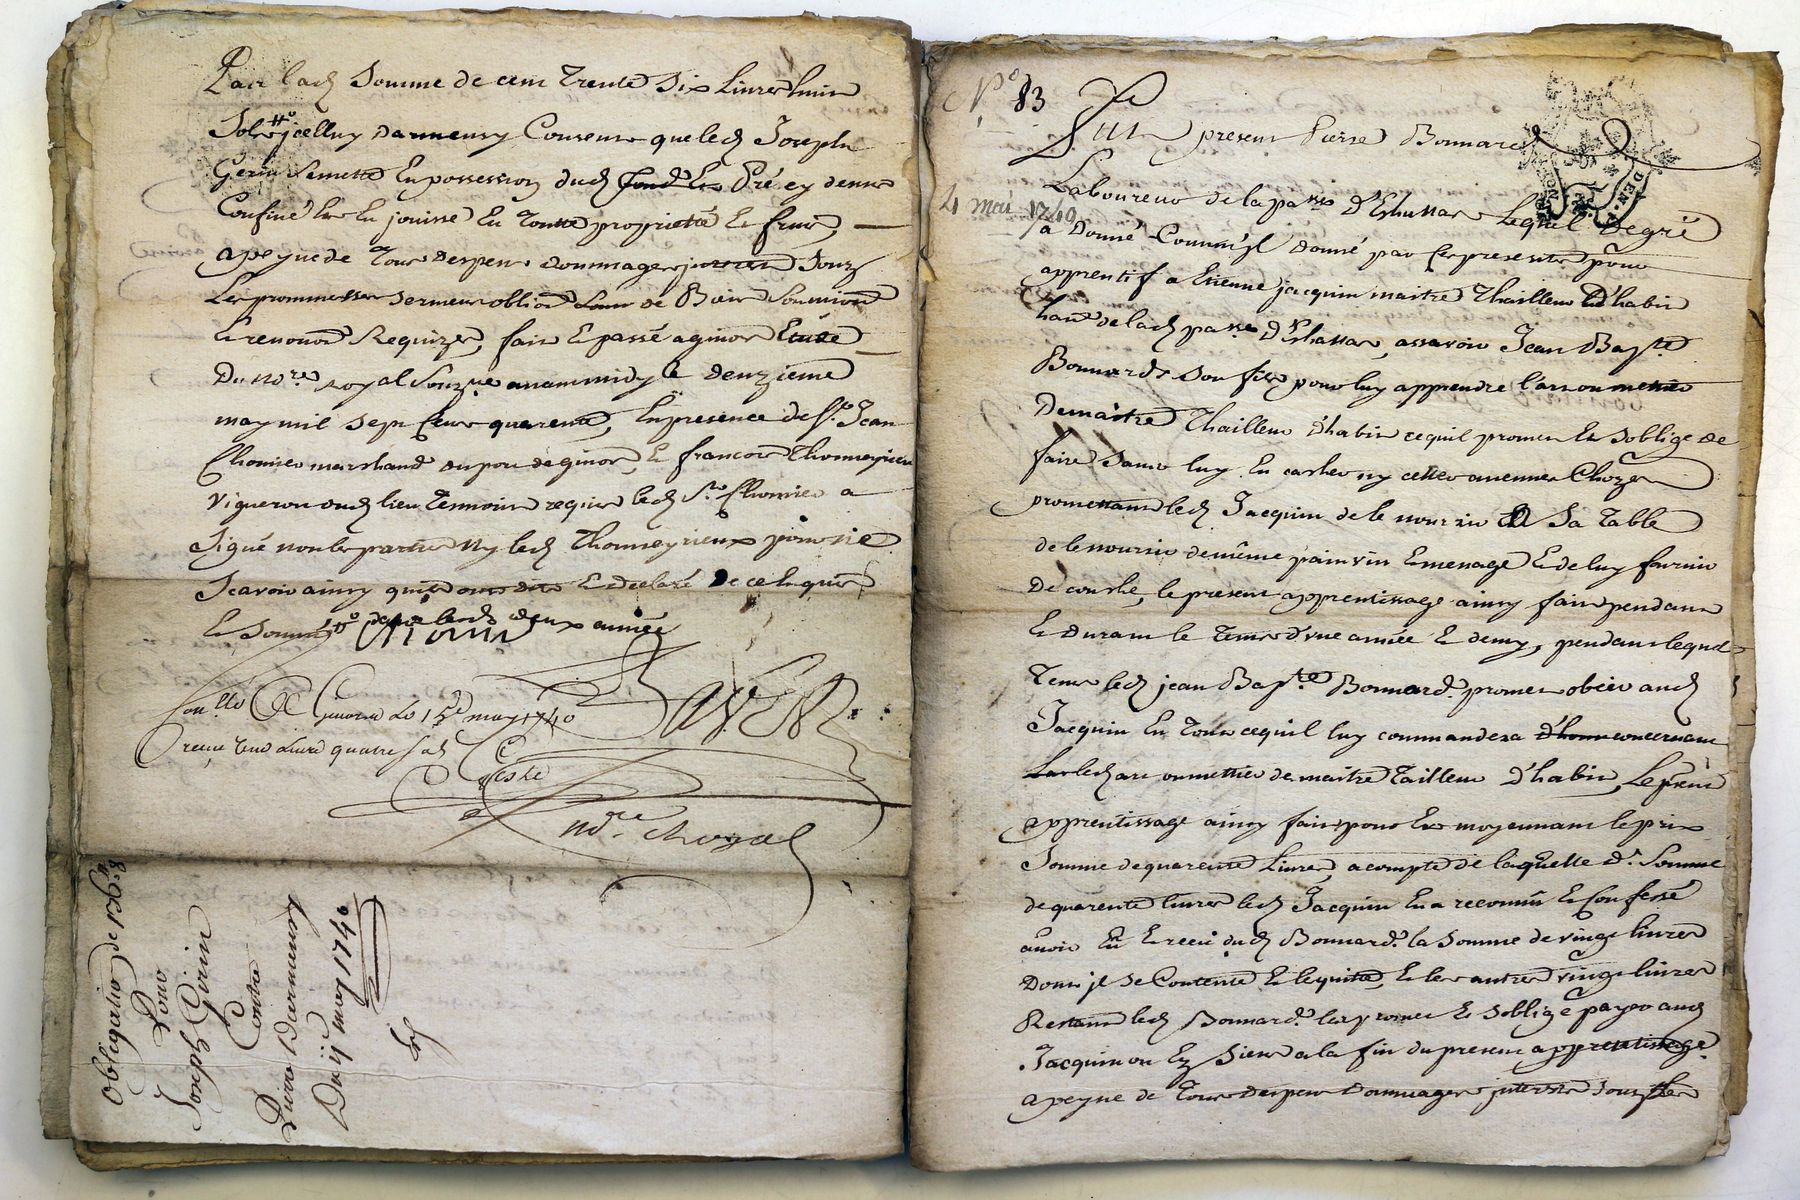 Par lad somme de cent trente six livres huit
sols icelluy darmeusy Consent que led Joseph
Gerin semette En possession dud Pré cy devant
Confiné En jouisse En toutte proprietté & fruit,
a peyne de tous despens dommages sous
Les prommesses serment de Bien soumions
& renonons Requizes, fait & passé a givors Etude
Du no.re royal souz.ne avant midy le deuzieme
may mil sept Cent quarente, En presence de s.r Jean
Chomier marchand du port de givors, & francois Thonneyrieux
vigneron aud lieu temoins requis led s.r Chomier a
signé non les parties Ny led Thonneyrieux pour ne
scavoir ainsy qu'ils ont dit & declaré de ce Enquis
& sommés
Chomier
Con.llé a Givors le 15e may 1740
receu une livre quatre sols
Ceste
no.re Royal
Obligation de 136 #. 8
Pour
Joseph Girin
Contre
Pierre Darmeusy
Du ij may 1740
N° 83
4 mai 1740
Fut present Pierre Bonnard
Laboureur de la pa.sse d'Echassas Lequel de gré
a Donné Comm'jl donne par Ces presentes pour
apprentif a Etienne jacquin maitre Thailleur D'habits
hant de lad pa.sse d'Echassas, assavoir Jean Bapte
Bonnard son fils pour luy apprendre l'art ou mettier
De maitre Thailleur d'habits ce quil promet Et s'oblige de
faire sans luy En cacher ny celler aucunes Chozes
promettant led Jacquin de le nourrir a Sa Table
de le nourrir de même pain vin & menage & de luy fournir
De couche, le present apprentissage ainsy fait pendant
& durant le tems d'une année & demy, pendant lequel
tems led jean Bapte Bonnard promet obeir aud
Jacquin En tout ce quil luy commandera concernant
Led art ou mettier de maitre tailleur d'habits, Le pnt
apprentissage ainsy fait pour Et moyennant le prix
Somme de quarente Livres, a compte de laquelle d. Somme
de quarente livres led Jacquin En a reconnu & Confessé
avoir Eu & receu dud Bonnard la somme de vingt livres
Dont jl se Contente & le quitte, & les autres vingt livres
Restant led Bonnard les promet & s'oblige payer aud
Jacquin ou Es siens a la fin du present apprentissage
a peyne de tous despens Dommages interests souz les